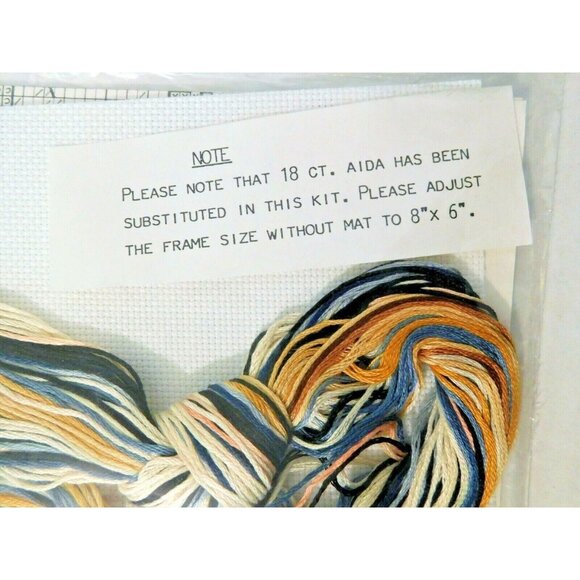 NOTE
PLEASE NOTE THAT 18 CT. AIDA HAS BEEN
SUBSTITUTED IN THIS KIT. PLEASE ADJUST
THE FRAME SIZE WITHOUT MAT TO 8"x 6".